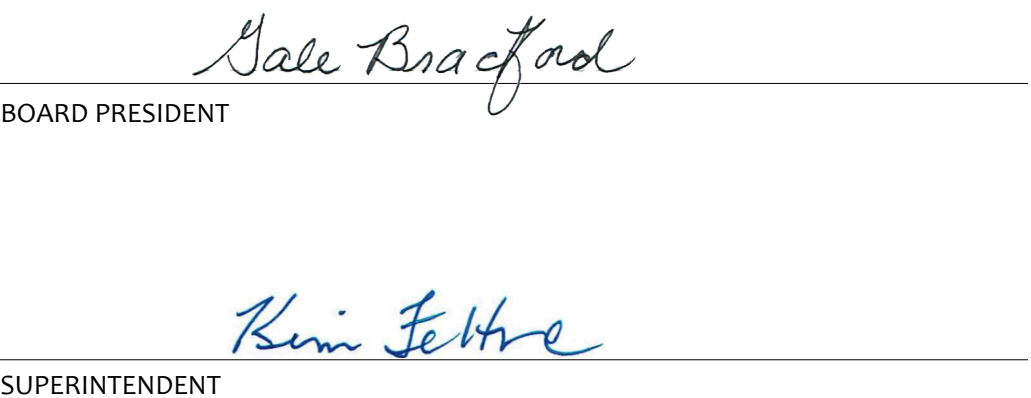 Gale Bradford
BOARD PRESIDENT
Kim Feltre
SUPERINTENDENT